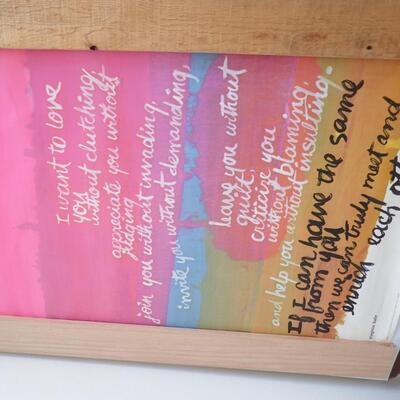 I want to love
you
without clutching,
appreciate you without
judging
join you without invading,
invite you without demanding,
leave you without
guilt,
criticize you
without blaming,
and help you without insulting.
If I can have the same
from you
then we can truly meet and
enrich each oth
virginia satir